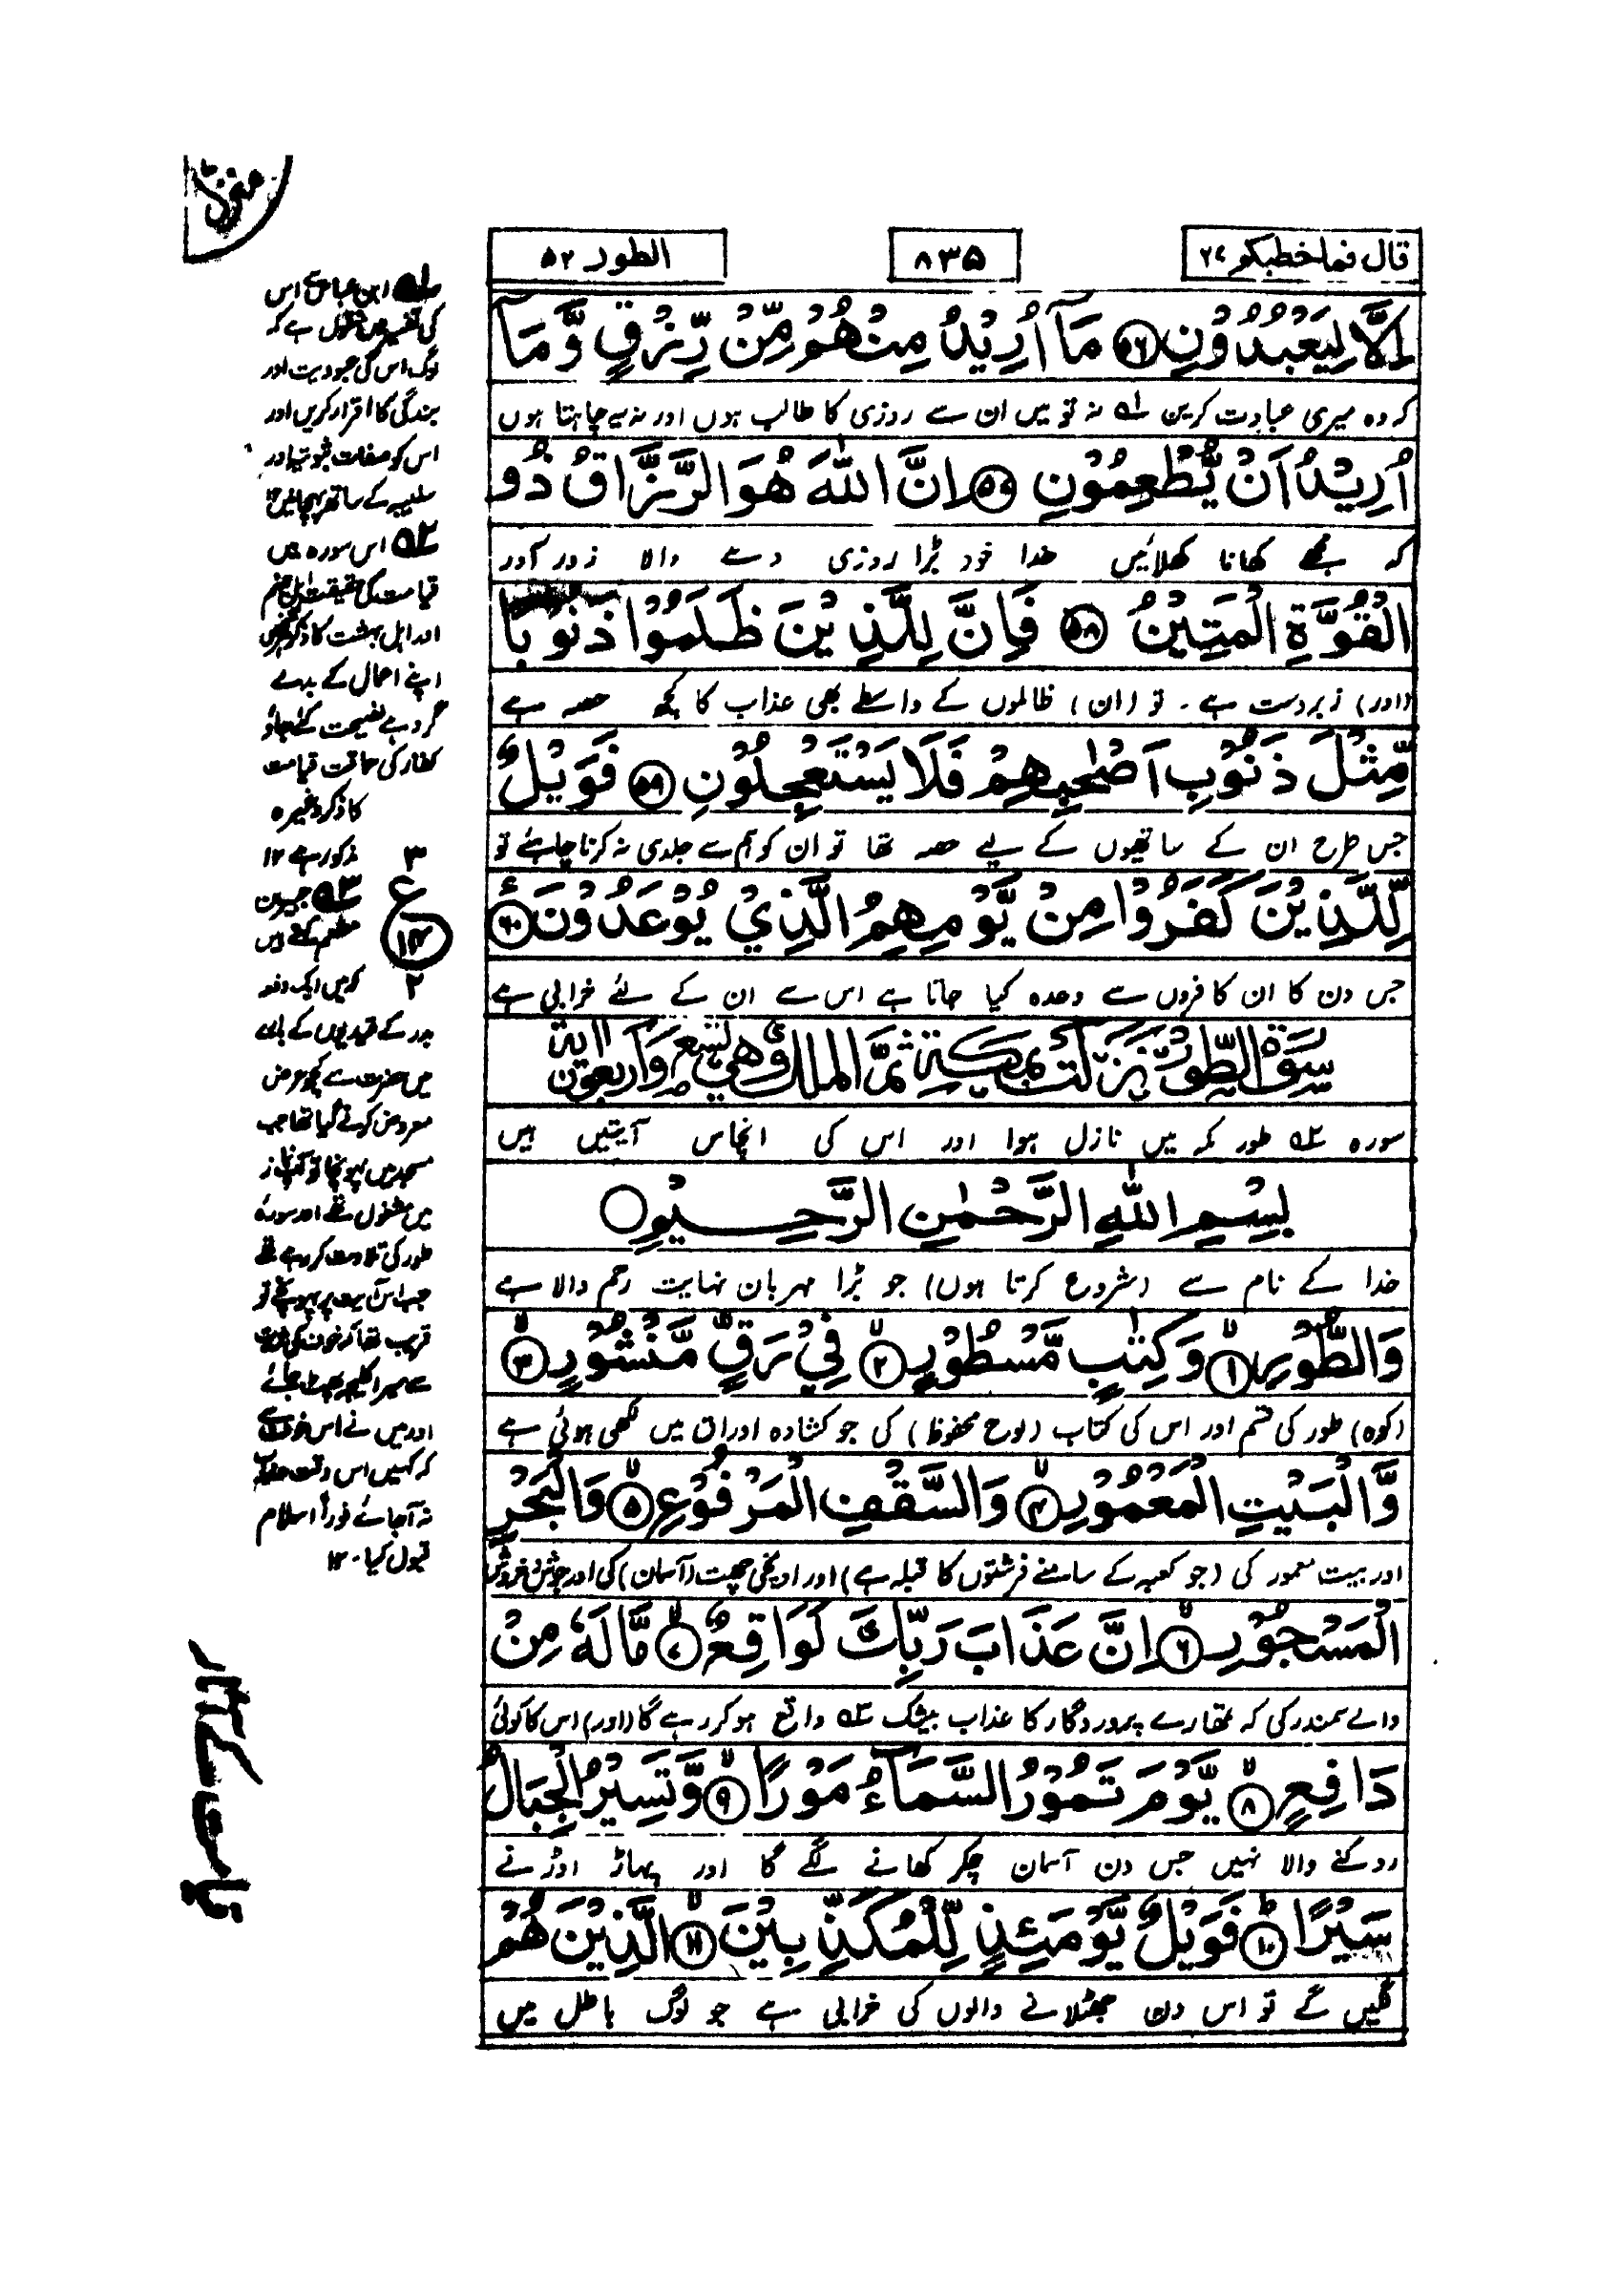 قال فما خطبكم ۲۷
۸۳۵
الطور ۵۲
اِلَّا لِيَعْبُدُوْنِ ۵۶ مَآ اُرِيْدُ مِنْهُمْ مِّنْ رِّزْقٍ وَّمَآ
کہ وہ میری عبادت کریں ۱ے نہ تو میں ان سے روزی کا طالب ہوں اور نہ یہ چاہتا ہوں
اُرِيْدُ اَنْ يُّطْعِمُوْنِ ۵۷ اِنَّ اللّٰهَ هُوَ الرَّزَّاقُ ذُو
کہ مجھے کھانا کھلائیں خدا خود بڑا روزی دینے والا زور آور
الْقُوَّةِ الْمَتِيْنُ ۵۸ فَاِنَّ لِلَّذِيْنَ ظَلَمُوْا ذَنُوْبًا
(اور) زبردست ہے۔ تو (ان) ظالموں کے واسطے بھی عذاب کا کچھ حصہ ہے
مِّثْلَ ذَنُوْبِ اَصْحٰبِهِمْ فَلَا يَسْتَعْجِلُوْنِ ۵۹ فَوَيْلٌ
جس طرح ان کے ساتھیوں کے لیے حصہ تھا تو ان کو ہم سے جلدی نہ کرنا چاہئے تو
لِّلَّذِيْنَ كَفَرُوْا مِنْ يَّوْمِهِمُ الَّذِيْ يُوْعَدُوْنَ ۶۰
جس دن کا ان کافروں سے وعدہ کیا جاتا ہے اس سے ان کے لئے خرابی ہے
سُوْرَةُ الطُّوْرِ نَزَلَتْ بِمَكَّةَ ثُمَّ الملك وَهِيَ تِسْعٌ وَّاَرْبَعُوْنَ اٰيَة
سورہ ۲ے طور مکہ میں نازل ہوا اور اس کی انچاس آیتیں ہیں
بِسْمِ اللّٰهِ الرَّحْمٰنِ الرَّحِيْمِ
خدا کے نام سے (شروع کرتا ہوں) جو بڑا مہربان نہایت رحم والا ہے
وَالطُّوْرِ ۱ وَكِتٰبٍ مَّسْطُوْرٍ ۲ فِيْ رَقٍّ مَّنْشُوْرٍ ۳
(کوہ) طور کی قسم اور اس کی کتاب (لوح محفوظ) کی جو کشادہ اوراق میں لکھی ہوئی ہے
وَّالْبَيْتِ الْمَعْمُوْرِ ۴ وَالسَّقْفِ الْمَرْفُوْعِ ۵ وَالْبَحْرِ
اور بیت معمور کی (جو کعبہ کے سامنے فرشتوں کا قبلہ ہے) اور اونچی چھت (آسمان) کی اور جوش و خروش
الْمَسْجُوْرِ ۶ اِنَّ عَذَابَ رَبِّكَ لَوَاقِعٌ ۷ مَّا لَهٗ مِنْ
والے سمندر کی کہ تمھارے پروردگار کا عذاب بیشک ۳ے واقع ہو کر رہے گا (اور) اس کا کوئی
دَافِعٍ ۸ يَّوْمَ تَمُوْرُ السَّمَآءُ مَوْرًا ۹ وَّتَسِيْرُ الْجِبَالُ
روکنے والا نہیں جس دن آسمان چکر کھانے لگے گا اور پہاڑ اوڑنے
سَيْرًا ۱۰ فَوَيْلٌ يَّوْمَئِذٍ لِّلْمُكَذِّبِيْنَ ۱۱ الَّذِيْنَ هُمْ
لگیں گے تو اس دن جھٹلانے والوں کی خرابی ہے جو لوگ باطل میں
۱ے ابن عباس سے اس
کی تفسیر میں منقول ہے کہ
لوگ اس کی عبودیت اور
بندگی کا اقرار کریں اور
اس کو صفات ثبوتیہ اور
سلبیہ کے ساتھ پہچانیں ۱۲
۲ے اس سورہ میں
قیامت کی حقیقت
اور اہل بہشت کا ذکر
اپنے اعمال کے بدلے
گرو ہے نصیحت کئے جاؤ
کفار کی حماقت قیامت
کا ذکر وغیرہ
مذکور ہے ۱۲
۳
ع
۱۴
۲
۳ے جبیر بن
مطعم کہتے ہیں
کہ میں ایک دفعہ
بدر کے قیدیوں کے بارے
میں حضرت سے کچھ عرض
معروض کرنے گیا تھا جب
مسجد میں پہونچا تو آپ نماز
میں مشغول تھے اور سورہ
طور کی تلاوت کر رہے تھے
جب اس آیت پر پہونچے تو
قریب تھا کہ خوف کی
سے میرا کلیجہ پھٹ جائے
اور میں نے اس خوف سے
کہ کہیں اس وقت عذاب
نہ آجائے فوراً اسلام
قبول کیا۔ ۱۲